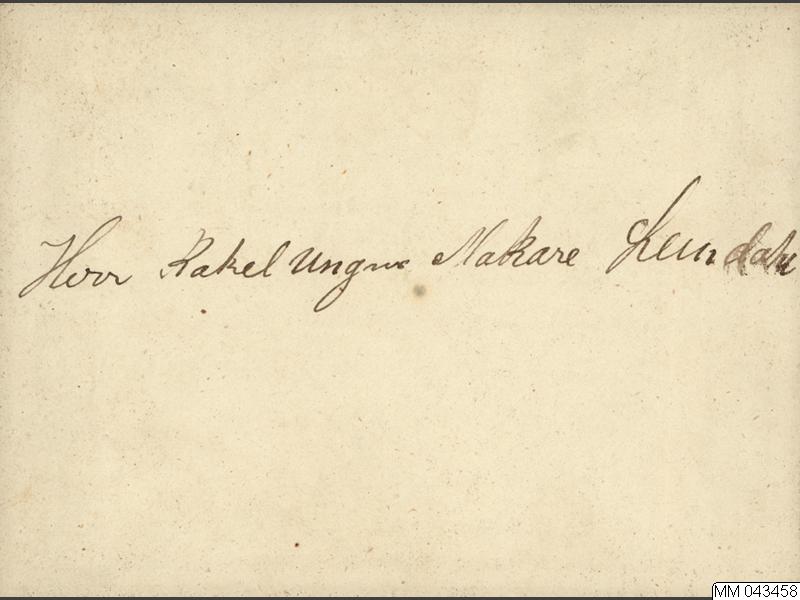 Herr Kakel Ungns Makare Lemdahl
MM 043458